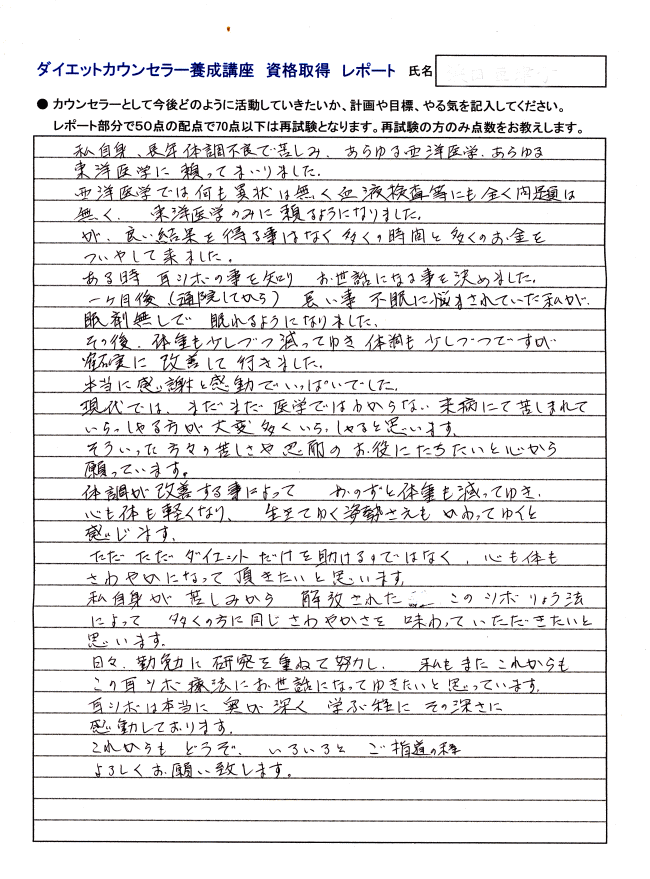 ダイエットカウンセラー養成講座 資格取得 レポート 氏名
● カウンセラーとして今後どのように活動していきたいか、計画や目標、やる気を記入してください。
レポート部分で50点の配点で70点以下は再試験となります。再試験の方のみ点数をお教えします。
私自身、長年体調不良で苦しみ、あらゆる西洋医学、あらゆる
東洋医学に頼ってまいりました。
西洋医学では何も異状は無く血液検査等にも全く問題は
無く、東洋医学のみに頼るようになりました。
が、良い結果を得る事はなく多くの時間と多くのお金を
ついやして来ました。
ある時 耳ツボの事を知り お世話になる事を決めました。
一ヶ月後(通院してから) 長い事 不眠に悩まされていた私が、
眠剤無しで 眠れるようになりました。
その後、体重も少しづつ減ってゆき 体調も 少しづつですが
確実に 改善して行きました。
本当に感謝と感動でいっぱいでした。
現代では、まだまだ 医学ではわからない 未病にて苦しまれて
いらっしゃる方が 大変多くいらっしゃると思います。
そういった方々の苦しさや 心配の お役にたちたいと心から
願っています。
体調が改善する事によって おのずと体重も減ってゆき、
心も体も軽くなり、 生きてゆく姿勢さえも かわってゆくと
感じます。
ただ ただ ダイエットだけを助けるのではなく、心も体も
さわやかになって 頂きたいと思います。
私自身が 苦しみから 解放された このツボりょう法
によって 多くの方に同じさわやかさを 味わっていただきたいと
思います。
日々、勤勉に 研究を重ねて努力し、 私もまた これからも
この耳ツボ療法にお世話になってゆきたいと思っています。
耳ツボは本当に 奥が深く 学ぶ程に その深さに
感動しております。
これからも どうぞ、 いろいろと ご指導の程
よろしくお願い致します。